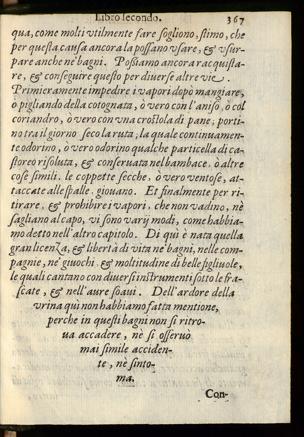 Libro secondo. 367
qua, come molti vtilmente fare sogliono, stimo, che
per questa causa ancora la possano vsare, & vsur-
pare anche ne bagni. Possiamo ancora racquista-
re, & conseguire questo per diuerse altre vie.
Primieramente impedire i vapori dopò mangiare,
ò pigliando della cotognata, ò vero con l'aniso, ò col
coriandro, ò vero con vna crostola di pane; porti-
no tra il giorno seco la ruta, la quale continuamen-
te odorino, ò vero odorino qualche particella di ca-
storeo risoluta, & conseruata nel bambace. ò altre
cose simili. le coppette secche, ò vero ventose, at-
taccate alle spalle. giouano. Et finalmente per ri-
tirare, & prohibire i vapori. che non vadino, nè
sagliano al capo, vi sono varij modi, come habbia-
mo detto nell'altro capitolo. Di quì è nata quella
gran licenza, & libertà di vita ne bagni, nelle com-
pagnie, ne giuochi. & moltitudine di belle figliuole,
le quali cantano con diuersi instrumenti sotto le fra-
scate, & nell'aure soaui. Dell'ardore della
vrina quì non habbiamo fatta mentione,
perche in questi bagni non si ritro-
ua accadere, nè si osseruò
mai simile acciden-
te, nè sinto-
ma.
Con-